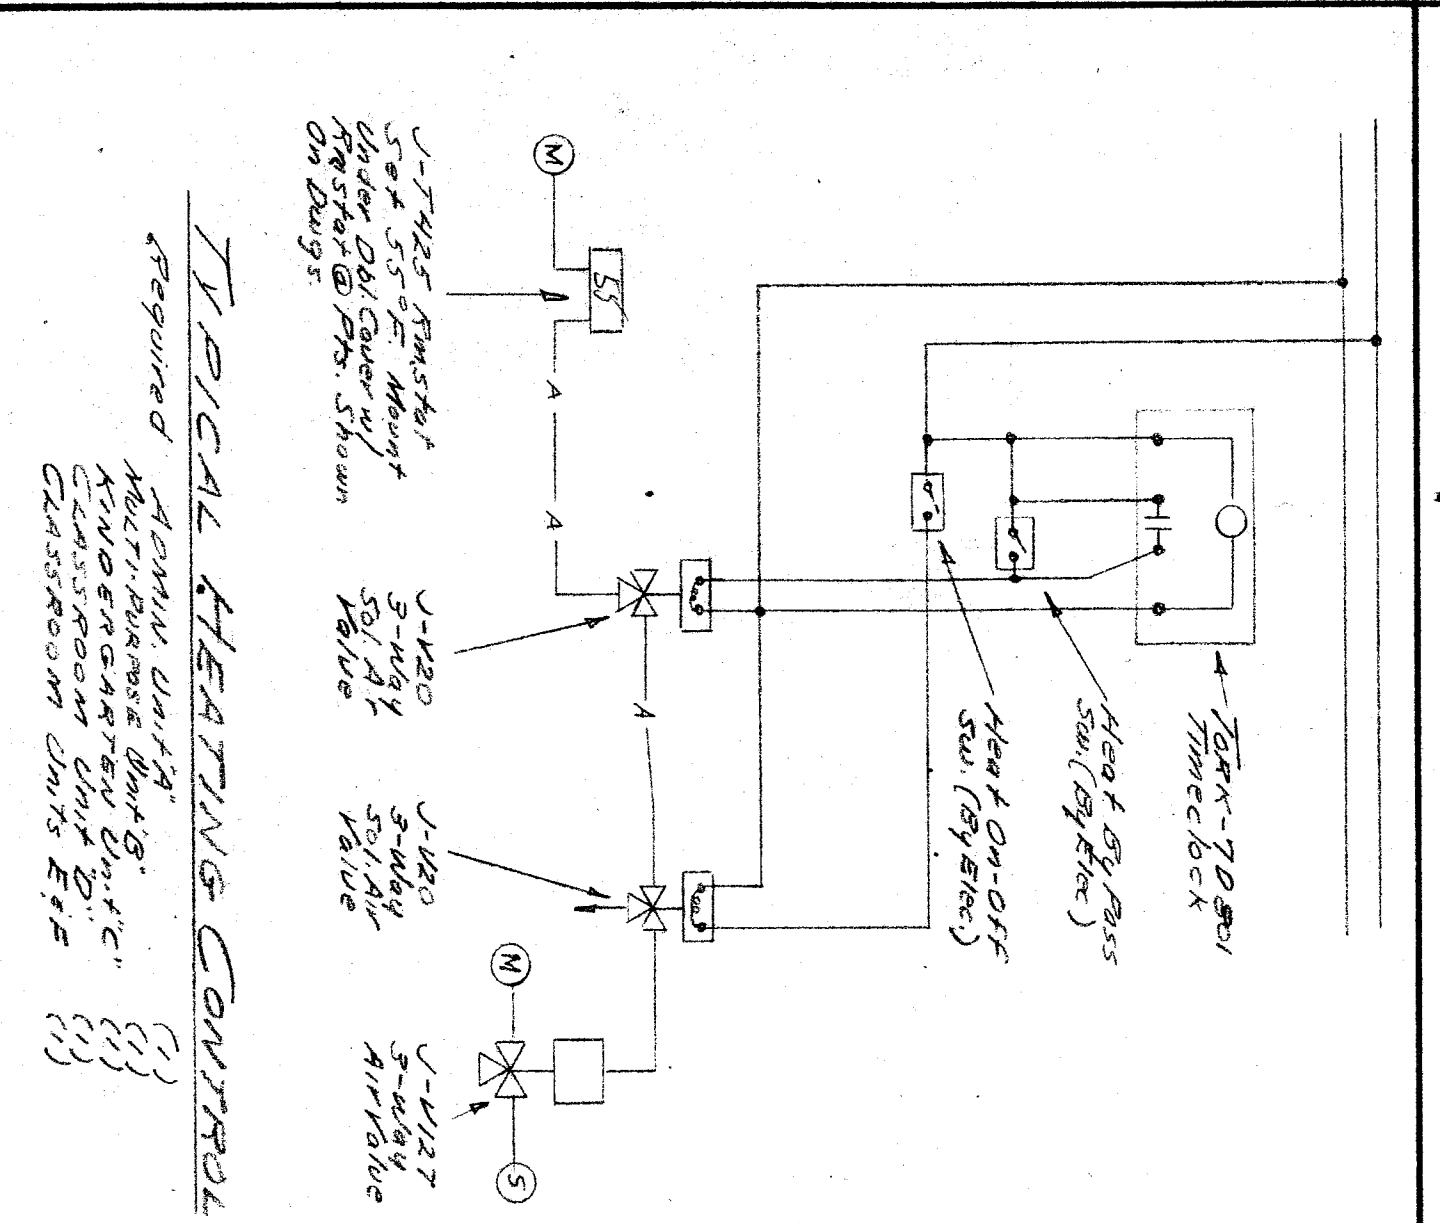 TORK-7080l
Timeclock
Heat By Pass
Sw. (By Elec)
Heat On-Off
Sw. (By Elec.)
55
M
A
A
A
J-T425 Rmstat
Set 55°F. Mount
Under Dbl. Cover w/
Rmstat @ Pts. Shown
On Dwgs.
J-V20
3-Way
Sol. Air
Valve
J-V20
3-Way
Sol. Air
Valve
M
S
J-V127
3-Way
Air Valve
TYPICAL HEATING CONTROL
Required
ADMIN. Unit "A" (1)
MULTI-PURPOSE Unit "B" (1)
KINDERGARTEN Unit "C" (1)
CLASSROOM Unit "D" (1)
CLASSROOM Units E & F (1)